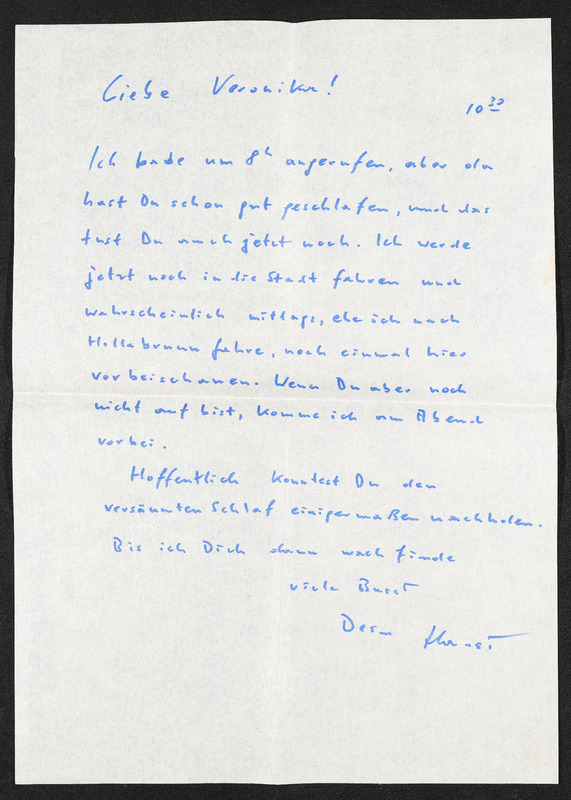 Liebe Veronika!
10³⁰
Ich habe um 8ʰ angerufen, aber da
hast Du schon gut geschlafen, und das
tust Du auch jetzt noch. Ich werde
jetzt noch in die Stadt fahren und
wahrscheinlich mittags, ehe ich nach
Hollabrunn fahre, noch einmal hier
vorbeischauen. Wenn Du aber noch
nicht auf bist, komme ich am Abend
vorbei.
Hoffentlich konntest Du den
versäumten Schlaf einigermaßen nachholen.
Bis ich Dich dann wach finde
viele Bussi
Dein